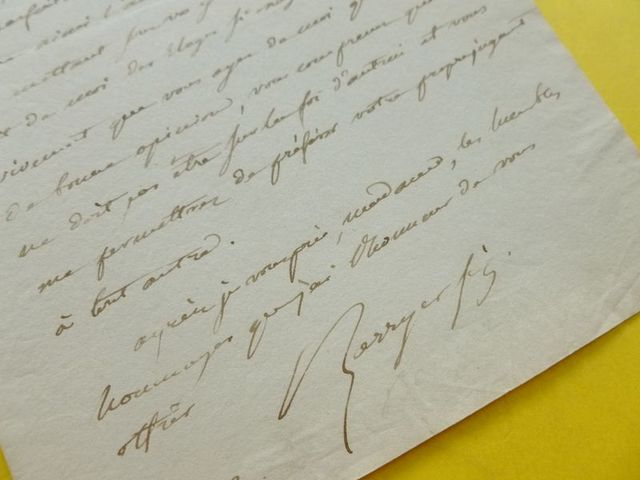 ainsi l'a
mettant pour vo
de moi des éloges si
vivement que vous ayez de moi q
de bonne opinion, vous comprenez que
ne doit pas être sur la foi d'autrui et vous
me permettrez de préférer votre propre jugement
à tout autre.
agréez je vous prie, madame, les humbles
hommages que j'ai l'honneur de vous
offrir
Berryer fils.